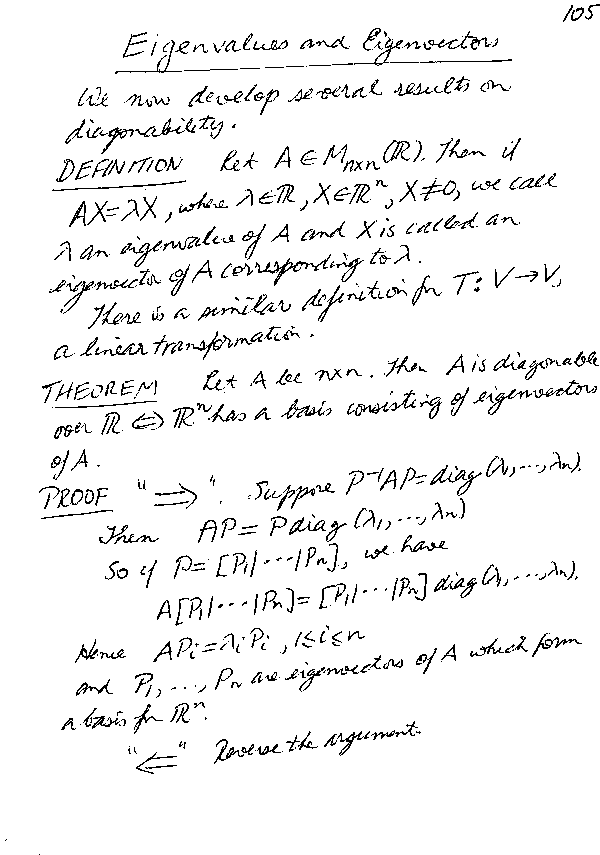 105
Eigenvalues and Eigenvectors
We now develop several results on
diagonability.
DEFINITION Let A ∈ Mₙₓₙ(ℝ). Then if
AX=λX, where λ∈ℝ, X∈ℝⁿ, X≠0, we call
λ an eigenvalue of A and X is called an
eigenvector of A corresponding to λ.
There is a similar definition for T: V→V,
a linear transformation.
THEOREM Let A be n×n. Then A is diagonable
over ℝ ⇔ ℝⁿ has a basis consisting of eigenvectors
of A.
PROOF "⇒". Suppose P⁻¹AP = diag(λ₁,...,λₙ).
Then AP = P diag(λ₁,...,λₙ)
So if P = [P₁|···|Pₙ], we have
A[P₁|···|Pₙ] = [P₁|···|Pₙ] diag(λ₁,...,λₙ).
Hence APᵢ=λᵢPᵢ, 1≤i≤n
and P₁,...,Pₙ are eigenvectors of A which form
a basis for ℝⁿ.
"⇐" Reverse the argument.